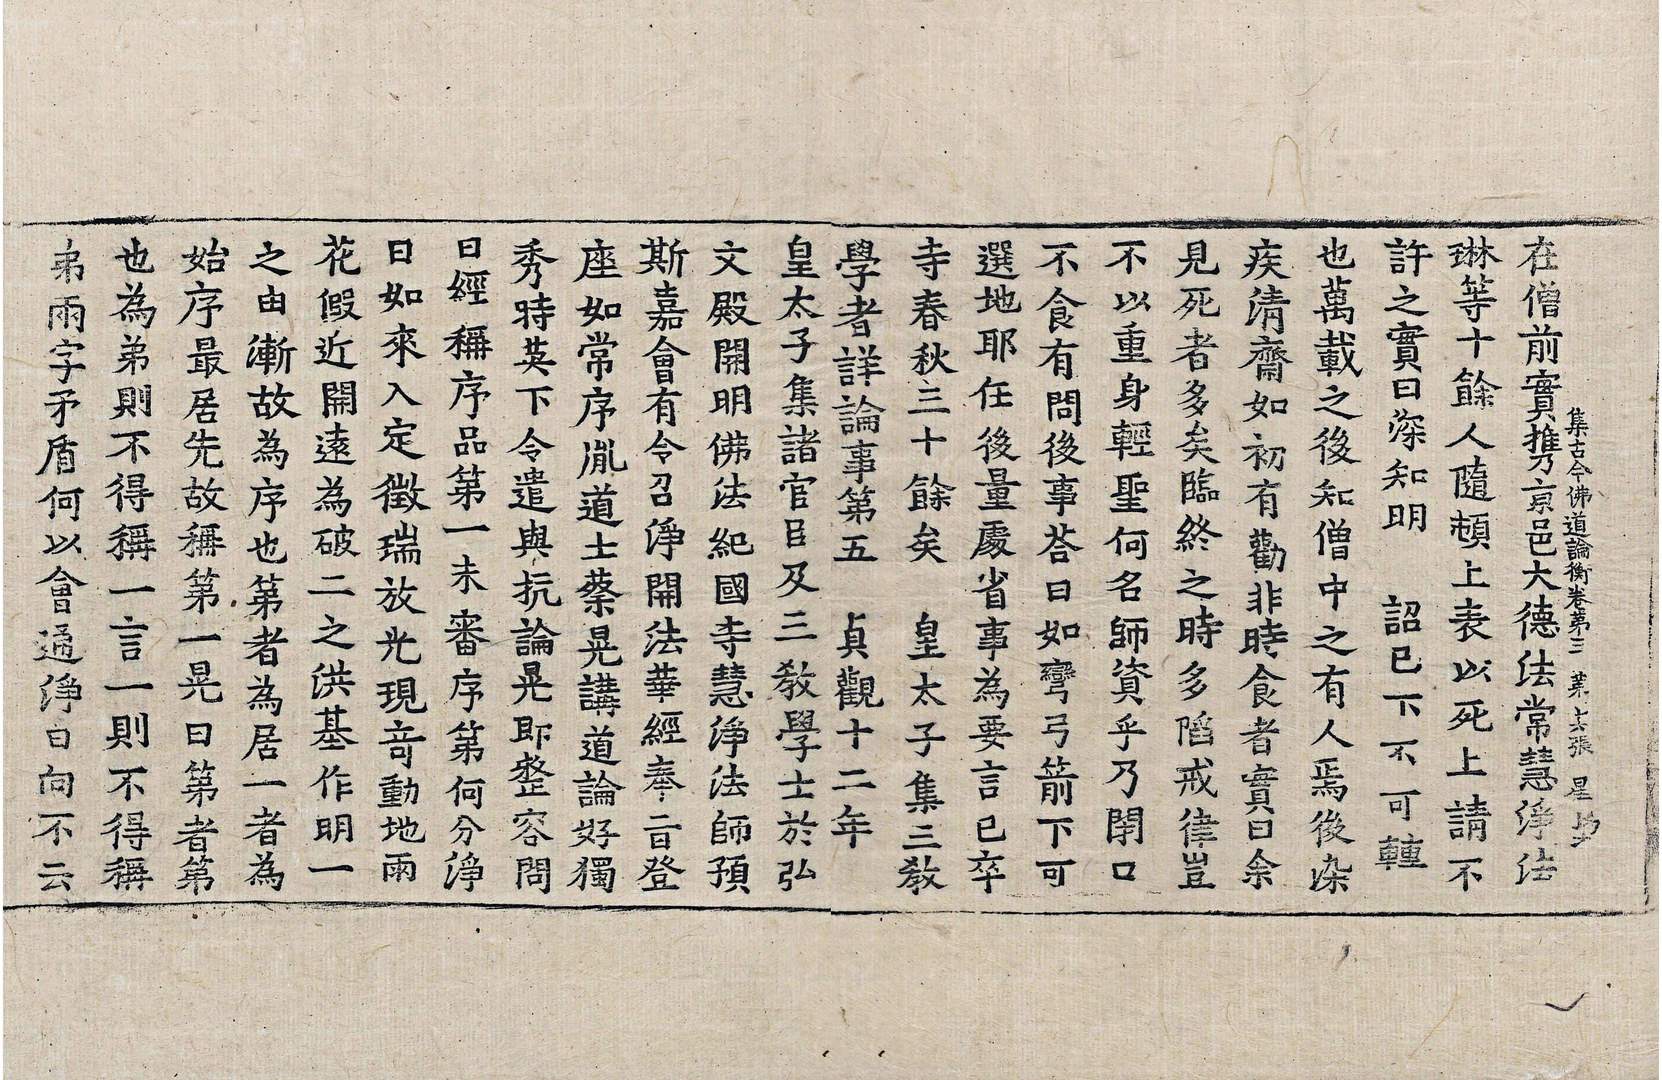 集古今佛道論衡卷第三 第十六張 星
在僧前實攜京邑大德法常慧淨法
琳等十餘人隨頓上表以死上請不
許之實曰深知明 詔已下不可轉
也萬載之後知僧中之有人焉後染
疾清齋如初有勸非時食者實曰余
見死者多矣臨終之時多䧟戒律豈
不以重身輕聖何名師資乎乃閉口
不食有問後事荅曰如彎弓箭下可
選地耶任後量處省事為要言已卒
寺春秋三十餘矣 皇太子集三教
學者詳論事第五 貞觀十二年
皇太子集諸官臣及三教學士於弘
文殿開明佛法紀國寺慧淨法師預
斯嘉會有令召淨開法華經奉旨登
座如常序胤道士蔡晃講道論好獨
秀時英下令遣與抗論晃即整容問
曰經稱序品第一未審序第何分淨
曰如來入定徵瑞放光現竒動地雨
花假近開遠為破二之洪基作明一
之由漸故為序也第者為居一者為
始序最居先故稱第一晃曰第者第
也為弟則不得稱一言一則不得稱
弟兩字矛盾何以會通淨曰向不云